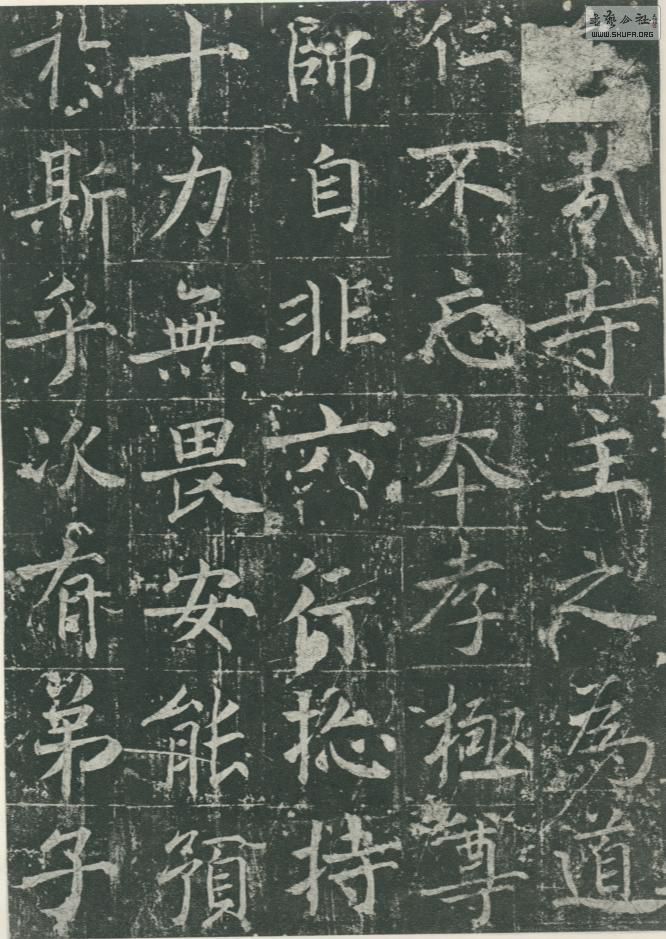 哉寺主之為道
仁不忘本孝極尊
師自非六行揔持
十力無畏安能預
於斯乎次有弟子
書藝公社
WWW.SHUFA.ORG